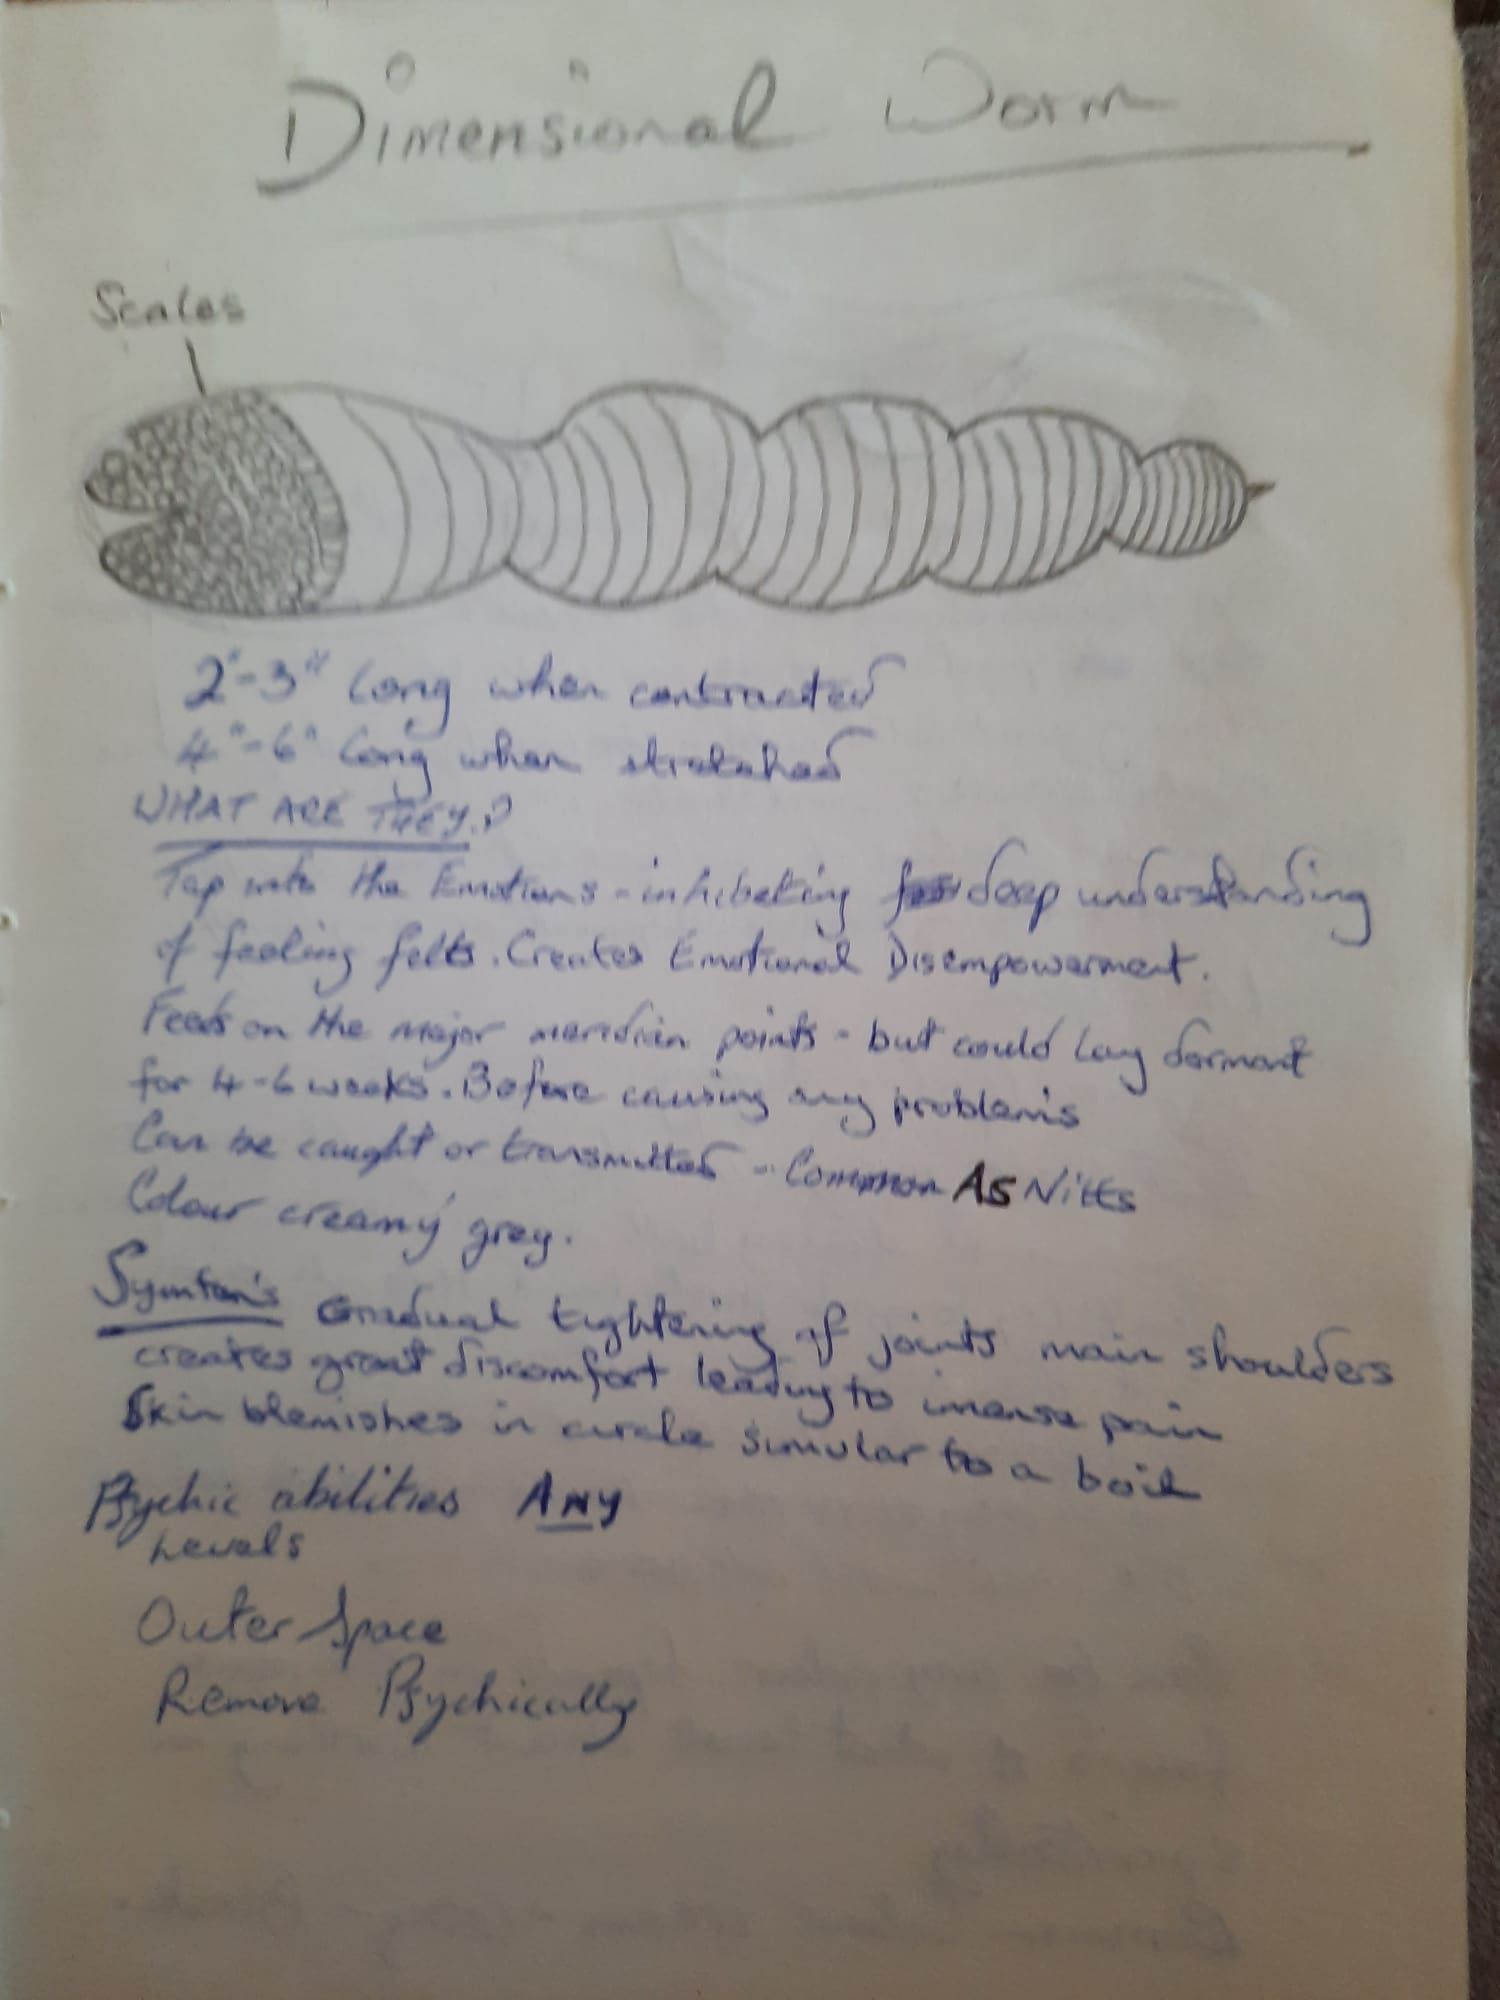 Dimensional Worm
Scales
2"-3" long when contracted
4"-6" long when stretched
WHAT ARE THEY.?
Tap into the Emotions - inhibeting deep understanding
of feeling felts. Creates Emotional Disempowerment.
Feeds on the major meridian points - but could lay dormant
for 4-6 weeks. Before causing any problems
Can be caught or transmitted - Common As Nitts
Colour creamy grey.
Symtom's Gradual tightening of joints main shoulders
creates great discomfort leading to imense pain
Skin blemishes in circle simular to a boil
Psychic abilities ANY
Levels
Outer Space
Remove Psychically